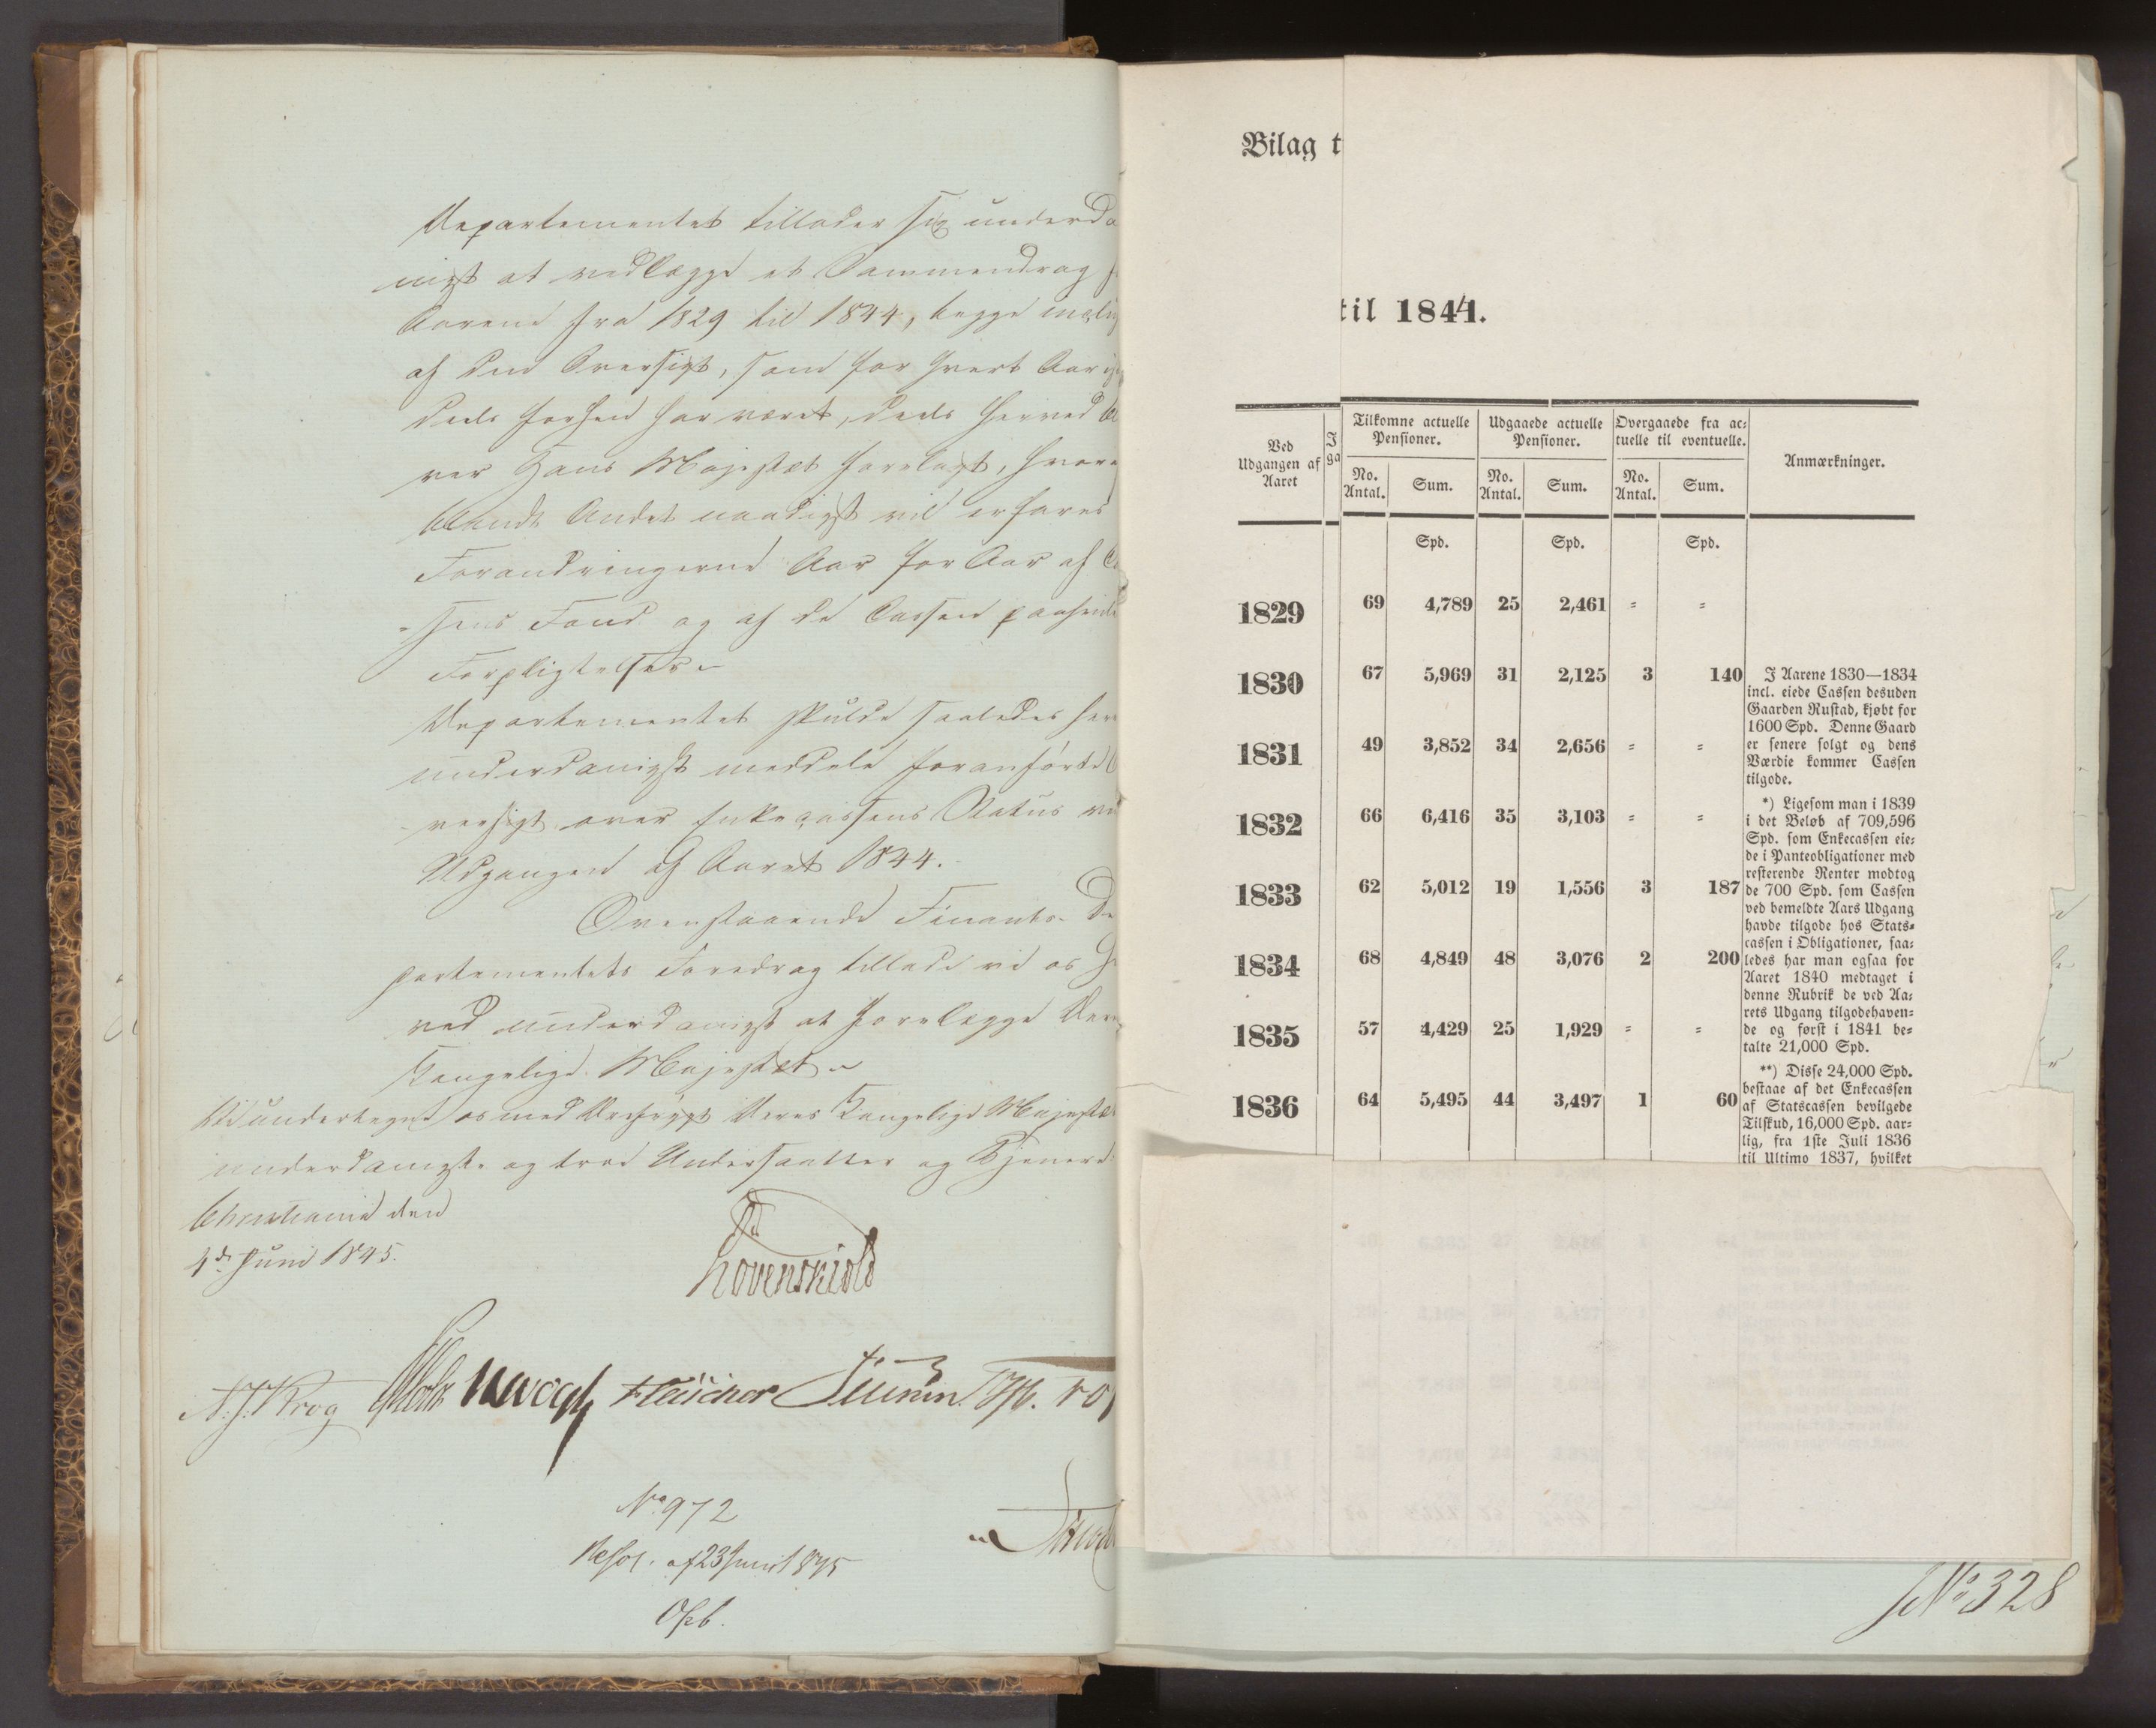 Departementet tillader sig underda
nigst at vedlægge et Sammendrag f
Aarene fra 1829 til 1844, begge incl
af den Oversigt, som for hvert Aar
deels forhen har været, deels herved bl
ver Hans Majestæt forelagt, hvor
blandt Andet naadigst vil erfares
Forandringerne Aar for Aar af C
sens Fond og af de Cassen paahvil
Forpligtelser.
Departementet skulde saaledes her
underdanigst meddele foranførte O
versigt over Enkecassens Status ve
Udgangen af Aaret 1844.
Ovenstaaende Finants-De
partementets Foredrag tillade vi os h
ved underdanigst at forelægge Der
Kongelige Majestæt.
underdanigste og troe Undersaatter og Tjenere
Christiania den
4de Juni 1845.
Løvenskiold
N. J. Krog Holst JHVogt Fleischer
No 972
Resol. af 23 Juni 1845
No 328
Bilag t
til 1844.
Ved Udgangen af Aaret
J
ga
Tilkomne actuelle Pensioner.
Udgaaede actuelle Pensioner.
Overgaaede fra ac=
tuelle til eventuelle.
Anmærkninger.
No. Antal. Sum. No. Antal. Sum. No. Antal. Sum.
Spd. Spd. Spd.
1829 69 4,789 25 2,461 = =
1830 67 5,969 31 2,125 3 140
1831 49 3,852 34 2,656 = =
1832 66 6,416 35 3,103 = =
1833 62 5,012 19 1,556 3 187
1834 68 4,849 48 3,076 2 200
1835 57 4,429 25 1,929 = =
1836 64 5,495 44 3,497 1 60
I Aarene 1830—1834
incl. eiede Cassen desuden
Gaarden Rustad, kjøbt for
1600 Spd. Denne Gaard
er senere solgt og dens
Værdie kommer Cassen
tilgode.
*) Ligesom man i 1839
i det Beløb af 709,596
Spd. som Enkecassen eie=
de i Panteobligationer med
resterende Renter modtog
de 700 Spd. som Cassen
ved bemeldte Aars Udgang
havde tilgode hos Stats=
cassen i Obligationer, saa=
ledes har man ogsaa for
Aaret 1840 medtaget i
denne Rubrik de ved Aa=
rets Udgang tilgodehaven=
de og først i 1841 be=
talte 21,000 Spd.
**) Disse 24,000 Spd.
bestaae af det Enkecassen
af Statscassen bevilgede
Tilskud, 16,000 Spd. aar=
lig, fra 1ste Juli 1836
til Ultimo 1837, hvilket